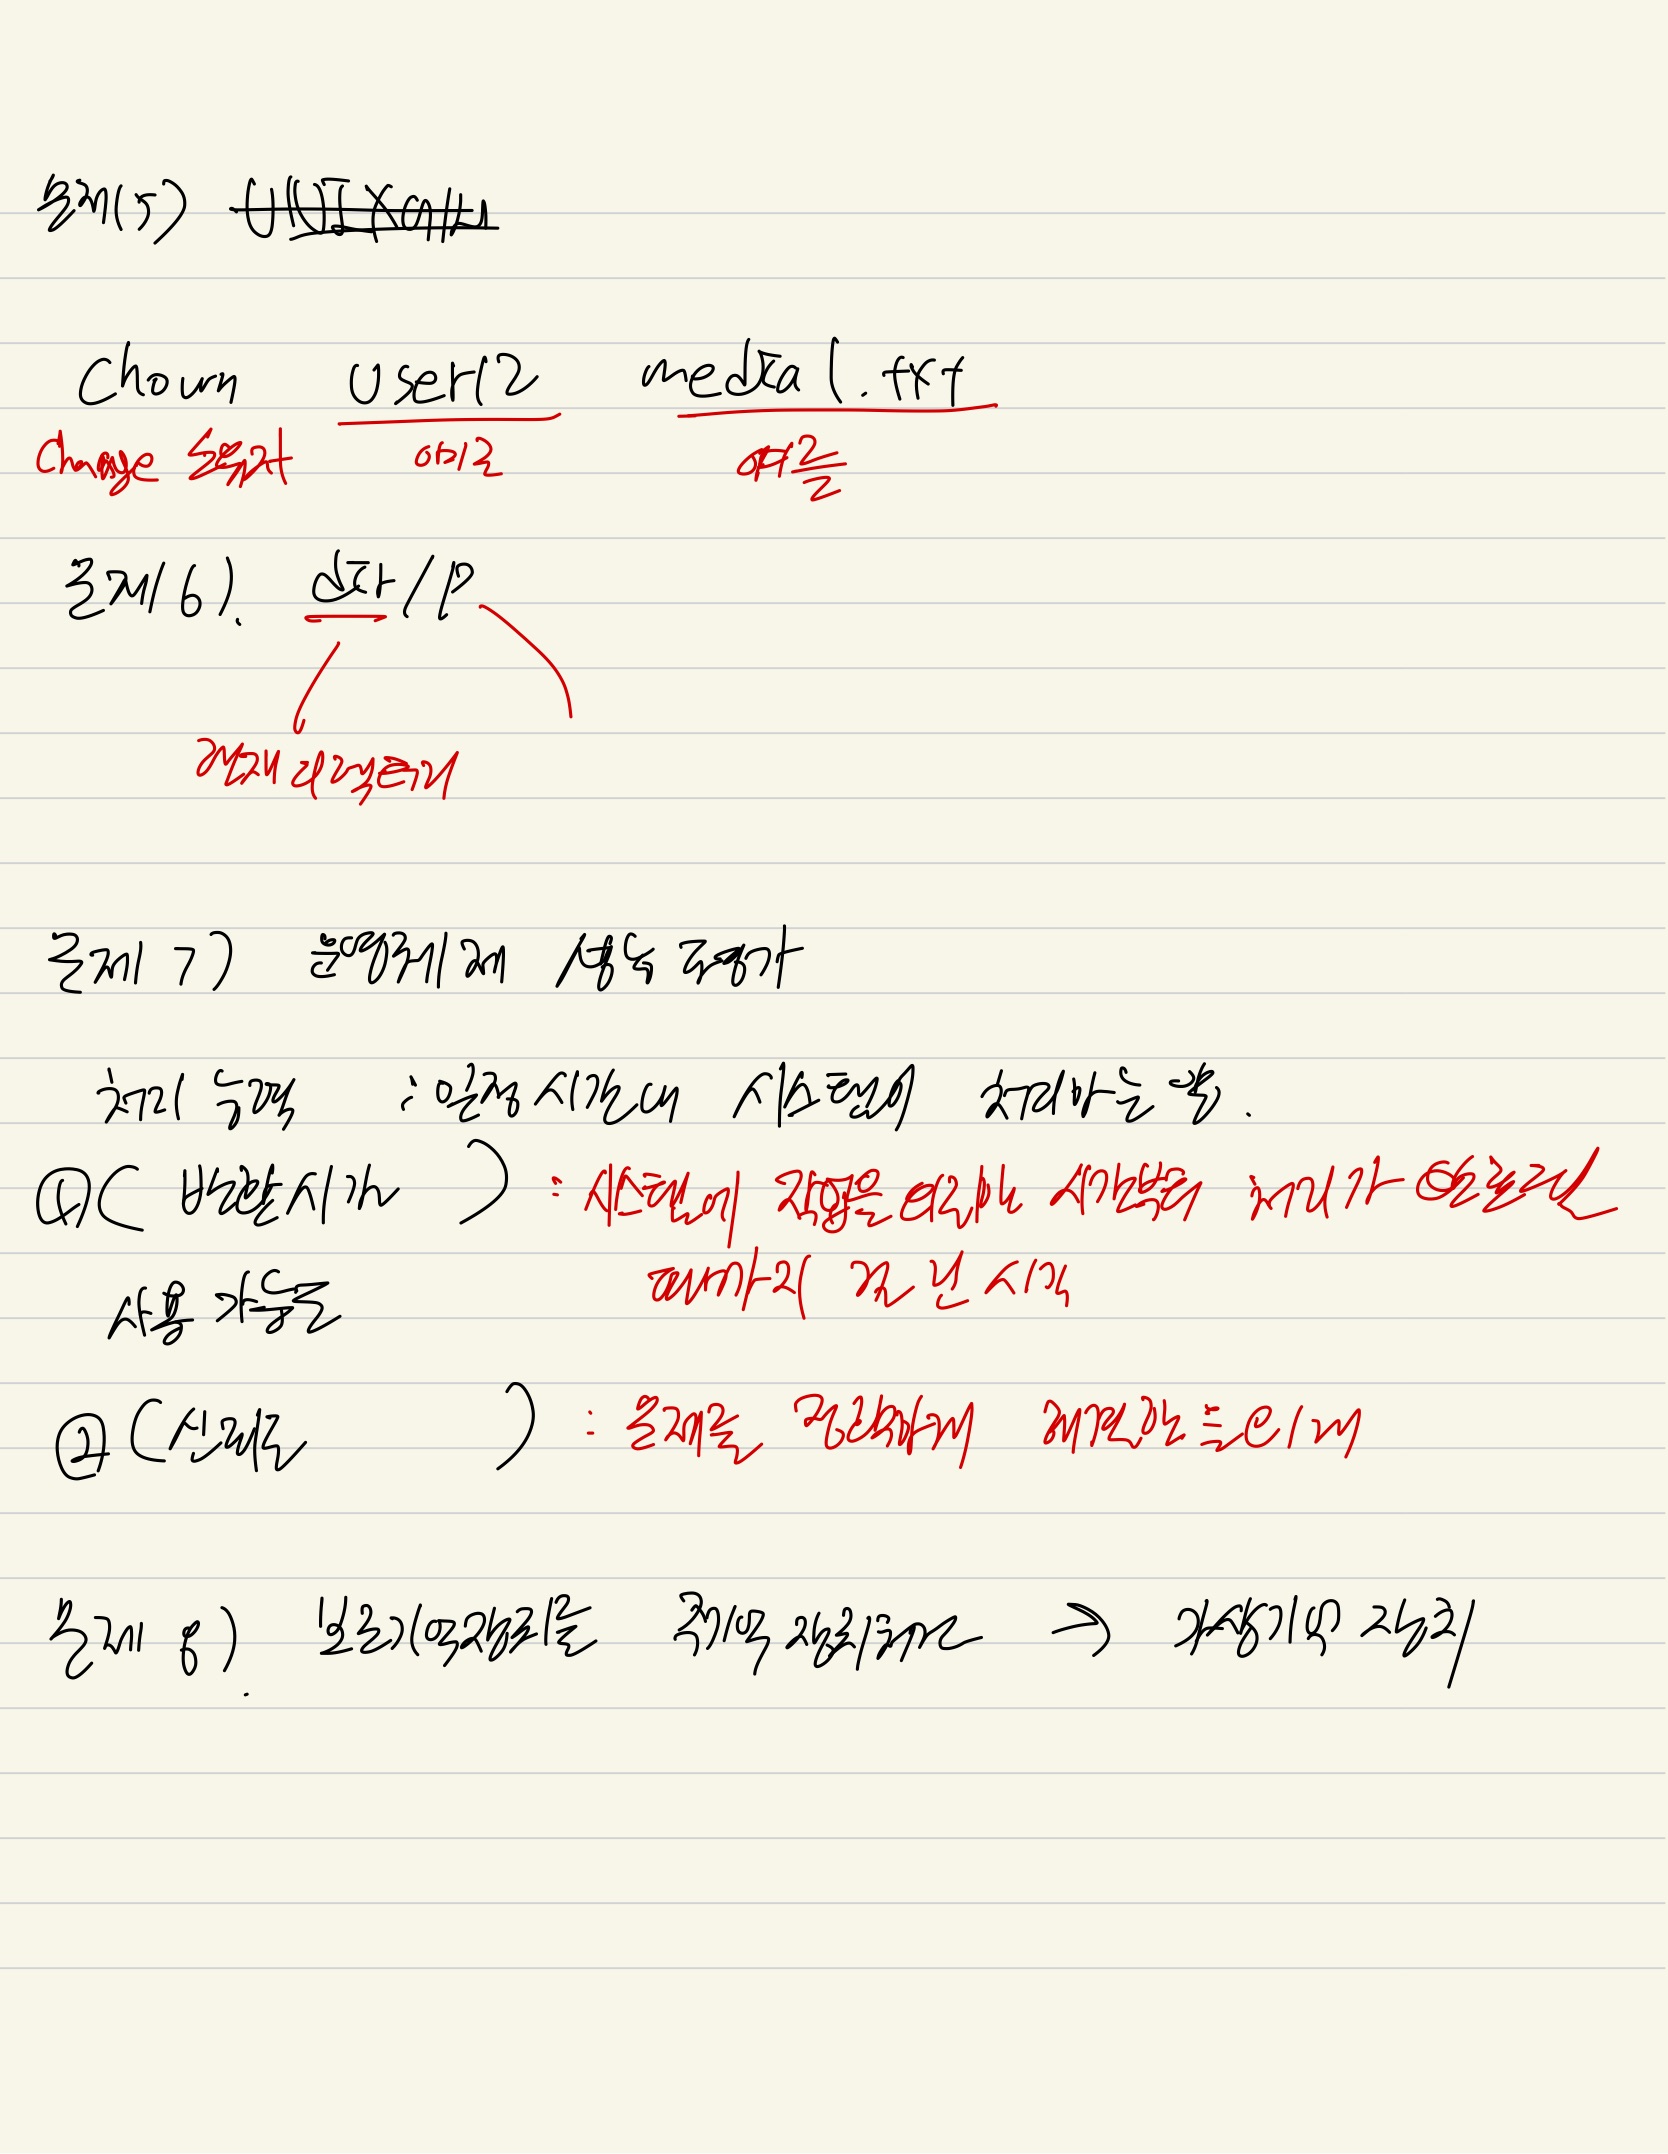 문제15) UNIX에서
chown user12 media1.txt
change 소유자 이걸로
문제16). dir /p
현재 디렉토리
문제17) 운영체제 성능 평가
처리 능력 : 일정 시간내 시스템이 처리하는 양.
①( 반환시간 ) : 시스템에 작업을 의뢰한 시간부터 처리가 완료될
때까지 걸린 시간
사용 가능도
②(신뢰도 ) : 문제를 정확하게 해결하는
문제 8). 보조기억장치를 주기억장치처럼 → 가상기억장치